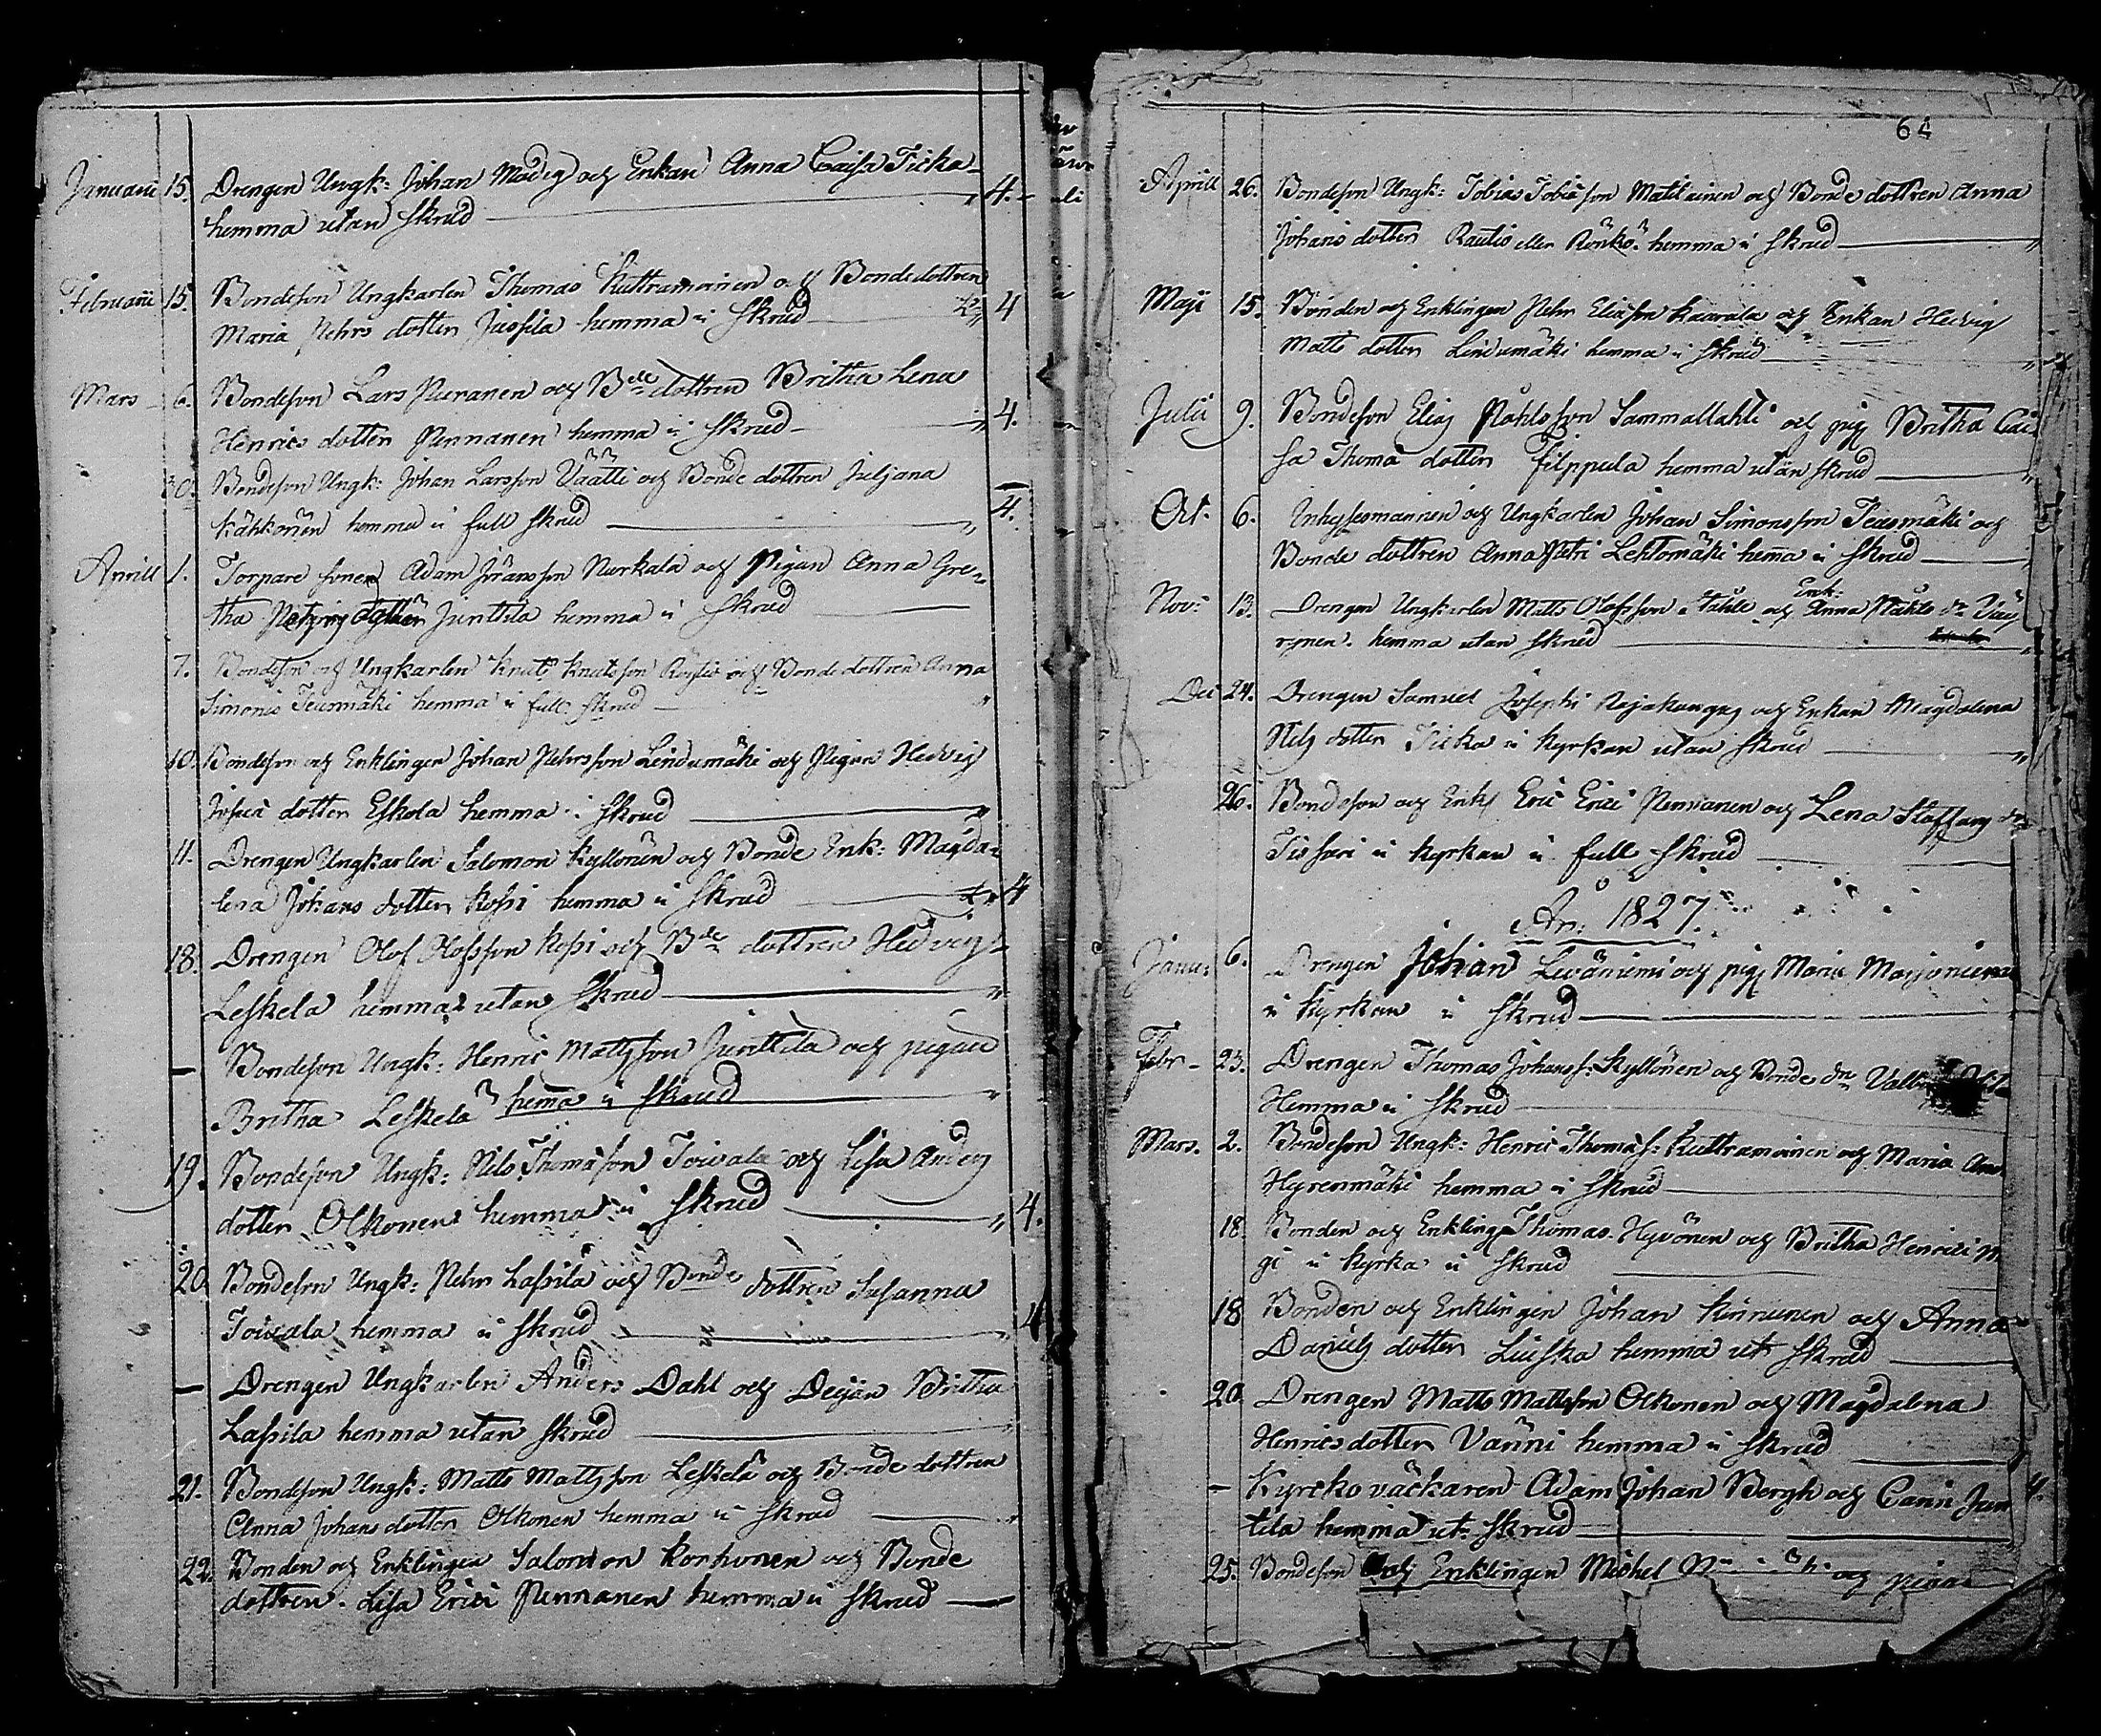 Januarii 15. Drengen Ungk: Johan Modig och Enkan Anna Caisa Ticka
hemma utan Skrud 4.
Februarii 15. Bondeson Ungkarlen Thomas Kuttramoinen och Bondedottren
Maria Pehrs dotter Jussila hemma i Skrud 4
Mars 6. Bondeson Lars Puranen och Bde dottren Britha Lena
Henrics dotter Pennanen hemma i Skrud 4.
30. Bondeson Ungk: Johan Larsson Väätti och Bonde dottren Juljana
Kähkönen hemma i full Skrud 4.
Aprill 1. Torpare sonen Adam Jöransson Nurkala och Pigan Anna Gre-
tha dotter Junttila hemma i Skrud
7. Bondeson och Ungkarlen Knut Knutsson och Bonde dottren Anna
Simonis Teermäki hemma i full Skrud
10. Bondeson och Enklingen Johan Pehrsson Lindumäki och Pigan Hedvig
dotter Eskola hemma i Skrud
11. Drengen Ungkarlen Salomon Kyllönen och Bonde Enk: Magda-
lena Johans dotter Kossi hemma i Skrud 4
18. Drengen Olof Olofsson Kossi och Bde dottren Hedvig
Leskela hemma utan Skrud
— Bondeson Ungk: Henric Mattsson Junttila och pigan
Britha Leskelä hema i Skrud
19. Bondeson Ungk: Nils Thomasson Toivala och Lisa Anders
dotter Olkonen hemma i Skrud 4.
20 Bondeson Ungk: Pehr Lassila och Bonde dottren Susanna
Toivala hemma i Skrud 4
— Drengen Ungkarlen Anders Dahl och Britha
Lassila hemma utan Skrud
21. Bondeson Ungk: Matts Mattsson Leskelä och Bonde dottren
Anna Johans dotter Olkonen hemma i Skrud
22. Bonden och Enklingen Salomon Korhonen och Bonde
dottren Lisa Erici Pennanen hemma i Skrud
64
Aprill 26. Bondeson Ungk: Tobias Tobiasson Matilainen och Bonde dottren Anna
Johans dotter Rautio eller Rönkö hemma i Skrud
Maji 15. Bonden och Enklingen Pehr Eliasson Kaarala och Enkan Hedvig
Matts dotter Lindumäki hemma i Skrud
Julii 9. Bondeson Elias Påhlsson Sammallahti och pig Britha Cai
sa Thoma dotter Filppula hemma utan Skrud
Oct. 6. Inhysesmannen och Ungkarlen Johan Simonsson Teermäki och
Bonde dottren Anna Petri Lehtomäki hema i Skrud
Nov: 13. Drengen Ungkarlen Matts Olofsson Ståhle och Enk: Anna Påhls dr Väy
rynen hemma utan Skrud
Dec 24. Drengen Samuel Josephi och Enkan Magdalena
Nils dotter Ticka i Kyrkan utan Skrud
26. Bondeson och Enkl Eric Erici Pennanen och Lena Staffans dr
Tissari i Kyrkan i full Skrud
År: 1827
Janu: 6. Drengen Johan Leväniemi och pig Maria Marjoniemi
i Kyrkan i Skrud
Febr 23. Drengen Thomas Johanss: Kyllönen och Bonde dn
Hemma i Skrud
Mars. 2. Bondeson Ungk: Henric Thomass: Kuttramoinen och Maria
Hyrenmäki hemma i Skrud
18 Bonden och Enkling Thomas Hyvönen och Britha Henrici
gi i Kyrka i Skrud
18 Bonden och Enklingen Johan Kinnunen och Anna
Daniels dotter Lieska hemma ut Skrud
20 Drengen Matts Mattsson Olkonen och Magdalena
Henrics dotter Vänni hemma i Skrud
— Kyrckoväckaren Adam Johan Bergh och Carin Jun
tila hemma ut: Skrud 4.
25. Bondeson och Enklingen Michel och pigan